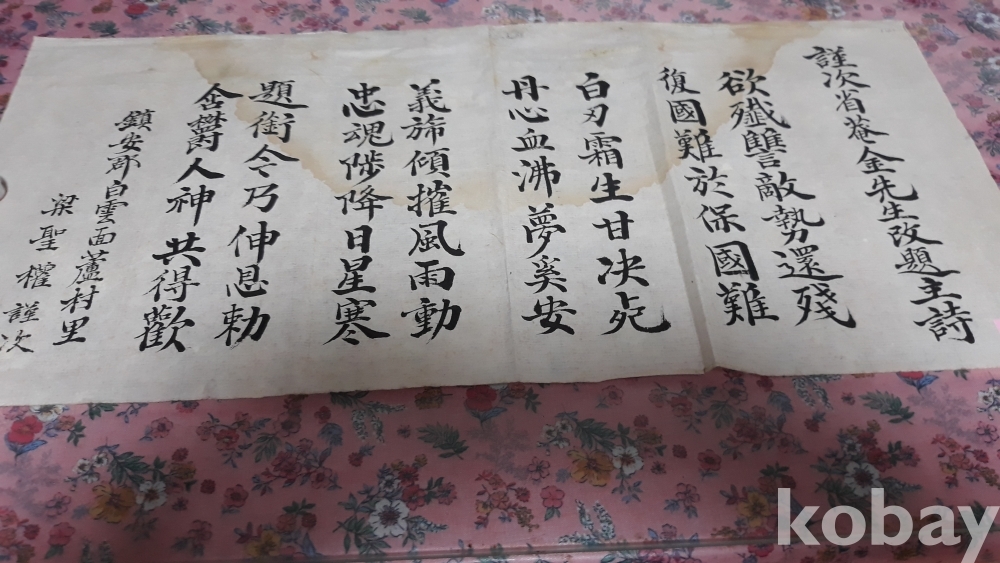 謹次省菴金先生改題主詩
欲殲讐敵勢還殘
復國難於保國難
白刃霜生甘决死
丹心血沸夢奚安
義旆傾摧風雨動
忠魂陟降日星寒
題銜今乃伸恩勅
含欝人神共得歡
鎮安郡白雲面蘆村里
梁聖權謹次
kobay